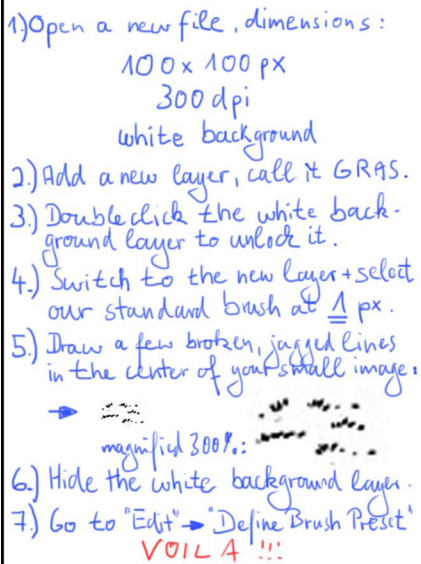 1.)Open a new file, dimensions:
100 x 100 px
300 dpi
white background
2.) Add a new layer, call it GRAS.
3.) Double click the white back-
ground layer to unlock it.
4.) Switch to the new layer + select
our standard brush at 1 px.
5.) Draw a few broken, jagged lines
in the center of your small image:
magnified 300%:
6.) Hide the white background layer.
7.) Go to "Edit" → "Define Brush Preset"
VOILA !!!